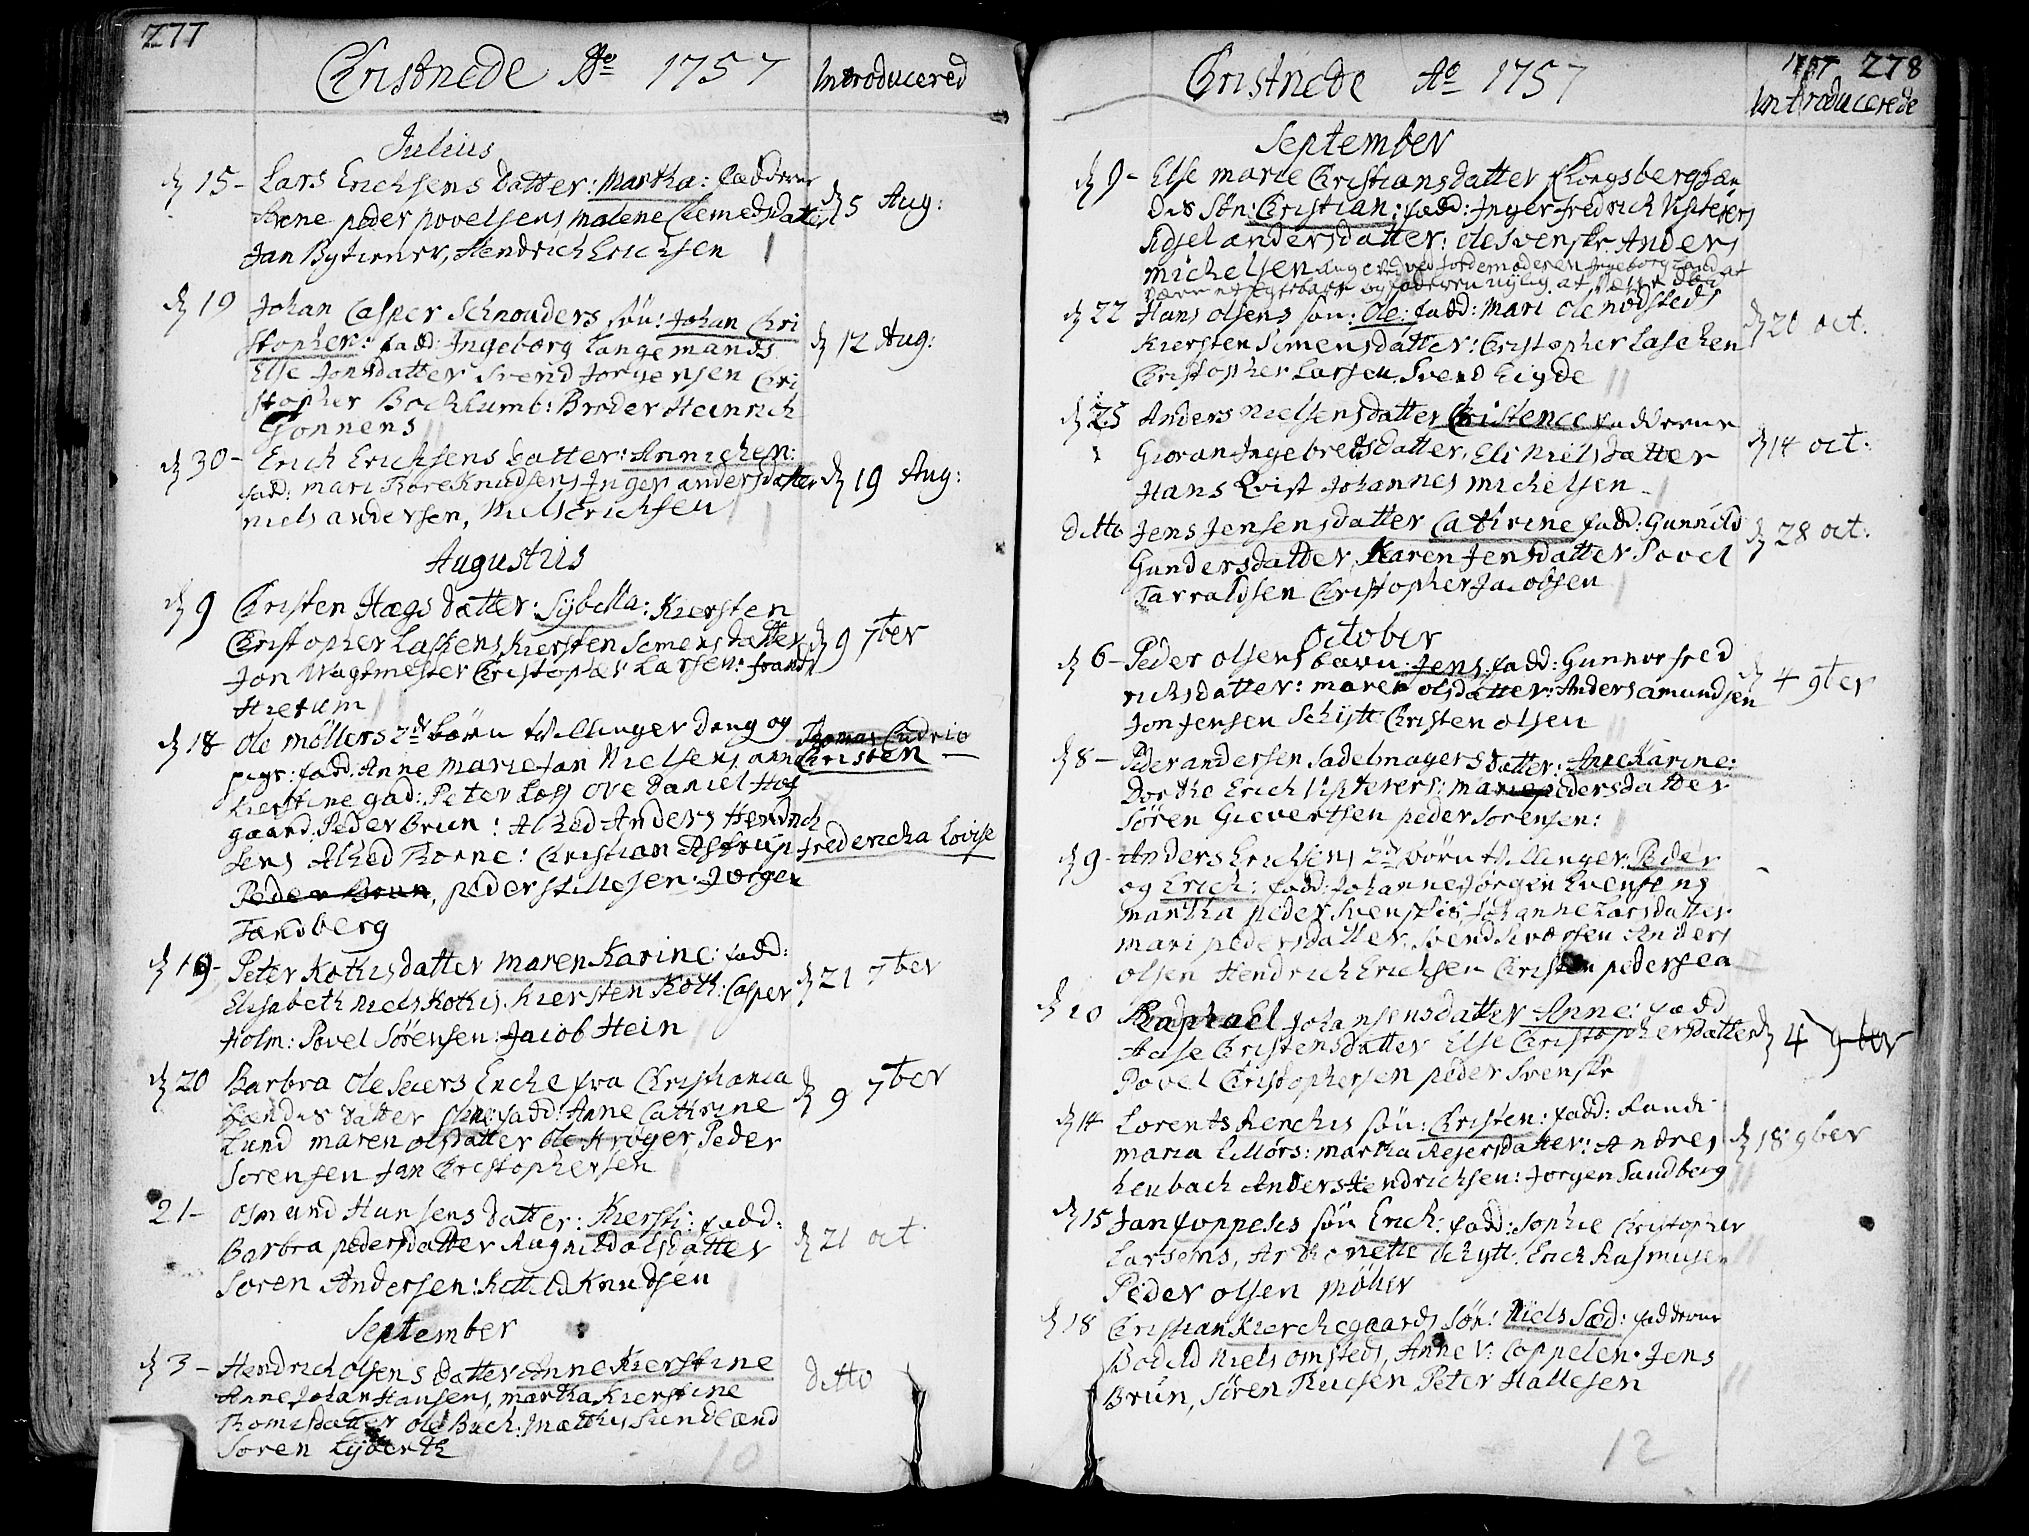 277
Christnede Ao 1757 Introducered
Julius
d 15 - Lars Erichsens datter: Martha: fadderne
peder povelsens, malene Clemedsdatter d 5 Aug:
Jan Bytienner, Hendrich Erichsen
d 19 Johan Casper Schnouders søn: Johan Chri
stopher: fadd: Ingeborg Langemands d 12 Aug:
Else Jonsdatter Svend Jorgensen Cri
stopher Bochlumb: Broder Heinrich
Gonnens
d 30 - Erich Erichsens datter: Annichen:
fadd: mari Tore Knudsens Inger andersdatter d 19 Aug:
niels andersen, Niels Erichsen
Augustus
d 9 Christen Hægs datter: Sybilla: Kiersten
Christopher Laskens Kiersten Semensdatter d 9 7ber
Jon Wagtmester Christopher Larsen: frands
Hietum
d 18 Ole møllers 2de børn tvillinger dreng og Thomas
pige: fadd. Anne marie Jan Nielsens anne Christen
Kierstine gad: Peter Ove Daniel Hof
gaard. Peder Brun: Alhed Anders Hendrich
sens Alhed Thorne: Christian Astrup fredericha Lovise
Peder Brun, peder stillesen. Jørgen
Tandberg
d 19 - Peter Kothis datter maren Karine: fadd:
Elisabeth niels Kothis, Kiersten Koth: Casper d 21 7ber
Holm: Povel Sørensen: Jacob Hein
d 20 Barbra ole Seiers Enche fra Christiania d 9 7ber
hendis datter fadd: Anne Cathrine
Lund maren olsdatter ole Krøger, Peder
Sorensen Jan Christophersen
21 - Osmund Hansens datter: Kiersti: fadd:
Barbra pedersdatter Ragnild olsdatter d 21 oct
Soren Andersen: Kettild Knudsen
September
d 3 - Hendrich olsens datter Anne Kierstine ditto
Anne Johan Hansens, martha Kierstine
Tomisdatter ole Buch: Matthis Sundland
Soren
10
1757 278
Christnede Ao 1757 Introducerede
September
d 9 - Else marie Christiansdatter Kongsberg hæn
dis Søn: Christian: fadd: Inger fredrich Visterers
Sidsel andersdatter: ole Svenske Anders
michelsen
d 22 Hans olsens søn: Ole: fadd: mari ole nodsteds d 21 oct.
Kiersten Simensdatter: Christopher Laschen
Christopher Larsen. Svend Eigde
d 25 Anders nielsens datter Christence fadderne
Gioran Ingebretsdatter, Eli Nielsdatter d 14 oct:
Hans Qvist Johannes michelsen
ditto Jens Jensens datter Cathrine fadd: Gunnild
Gundersdatter, Karen Jensdatter Povel d 28 oct:
Tarraldsen Christopher Jacobsen
October
d 6 - Peder olsens barn: Jens fadd: Gunnor fred
richsdatter: maren olsdatter: Anders amundsen d 4 9ber
Jon Jensen Schytt Christen olsen
d 8 - Peder andersen Sadelmagers datter: Anne Karine:
Dorthe Erich Visterers: marie pedersdatter
Søren Gievertsen peder Sorensen:
d 9 - Anders Erichsens 2de børn tvillinger: Peder
og Erich: fadd: Johanne Jørgen Evensens
martha peder Svenskis, Johanne Larsdatter
mari pedersdatter, Svend Anders
olsen Hendrich Erichsen Christen pedersen
d 10 Raphael Johansens datter Anne: fadd
Aase Christensdatter Else Christophersdatter d 4 9ber
Povel Christophersen peder Svenske
d 14 Lorents Renchis søn: Christen: fadd: Randi
maria martha Rejersdatter: Andres d 18 9ber
Leubach Anders Hendrichsen: Jorgen Sandberg
d 15 Jan foppesis søn Erich: fadd: Sophie Christopher
Larsens, Schytt. Erich Rasmusen
Peder olsen møller
d 18 Christian Kierchegaards Søn: Niels Sæd: fadderne
Bodild Niels omsteds, Anne v: Coppelen. Jens
Brun, Søren Thuesen Peter Hallesen
12